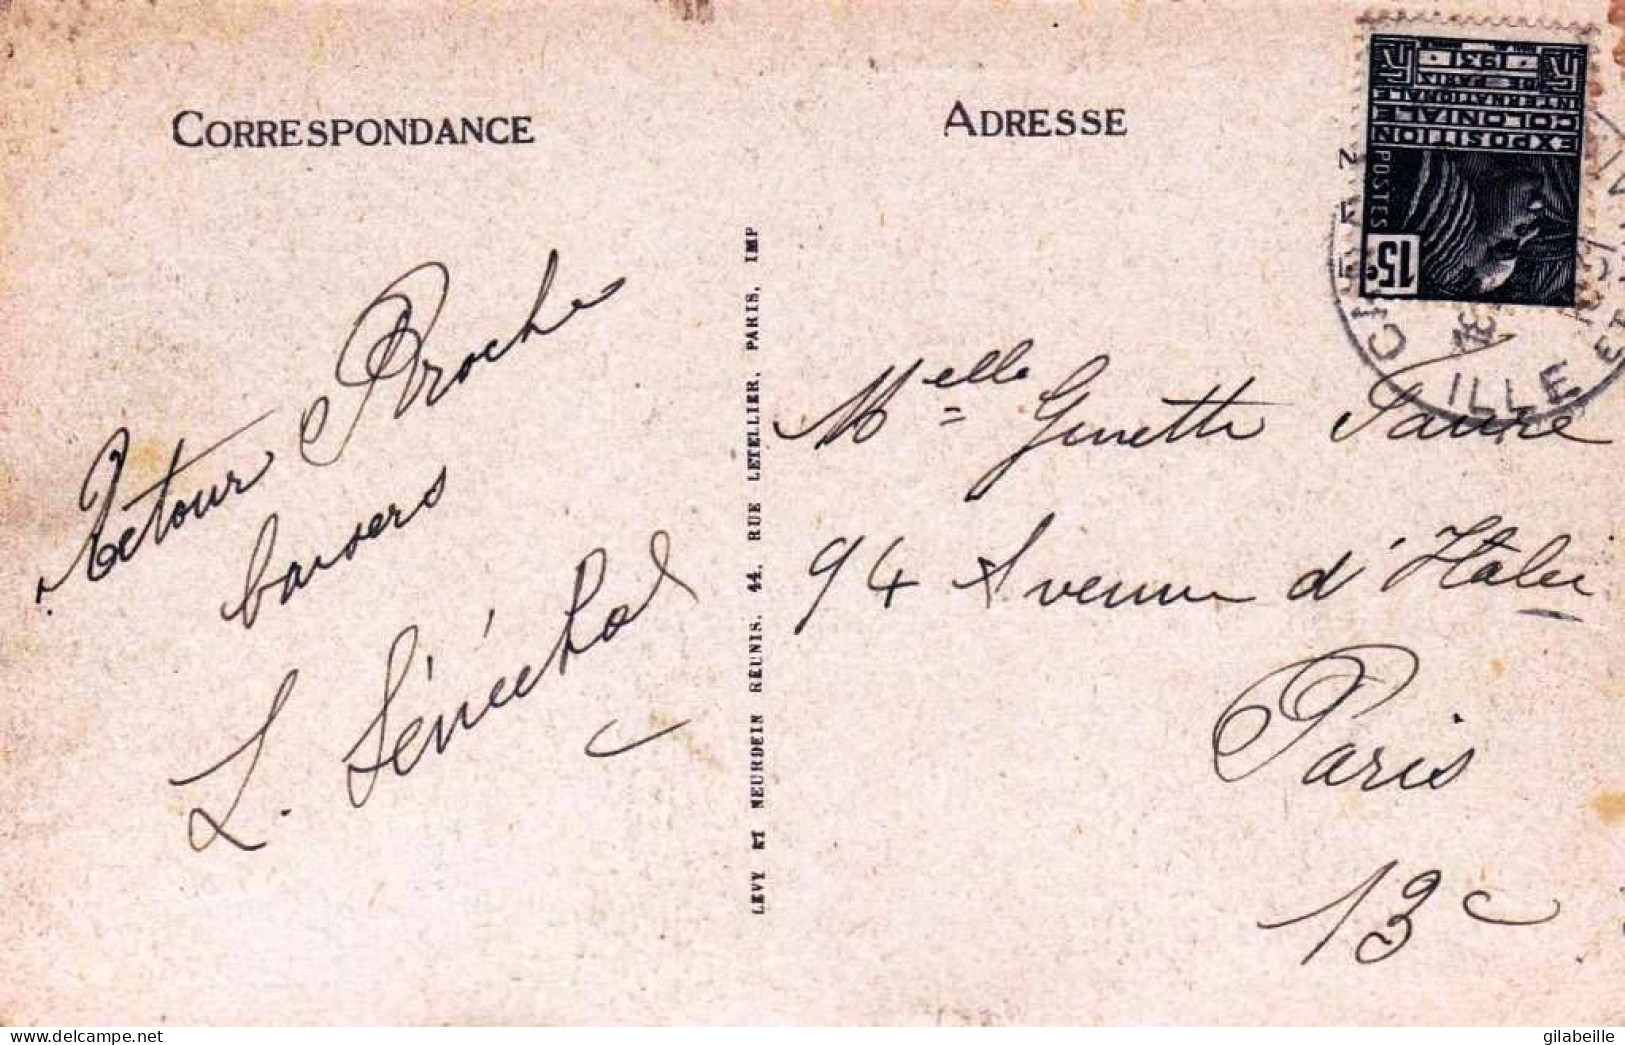 CORRESPONDANCE
Retour Proche
baisers
L. Sénéchal
LEVY ET NEURDEIN RÉUNIS, 44, RUE LETELLIER, PARIS, IMP
ADRESSE
EXPOSITION
COLONIALE
INTERNATIONALE
DE PARIS
1931
POSTES
15c
ILLE ET
Melle Ginette Faure
94 Avenue d'Italie
Paris
13e
delcampe.net
gilabeille